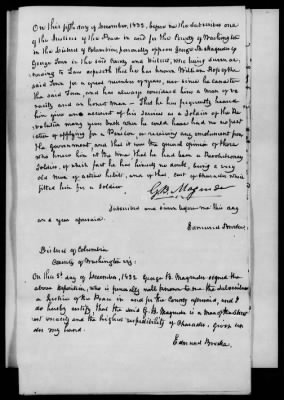 On this fifth day of December, 1832, before me the Subscriber one
of the Justices of the Peace in and for the County of Washington
in the District of Columbia, personally appears George B. Magruder of
George Town in the said County and District, who being duly sworn
according to Law deposeth that he has known William Rose of the
said Town for a great number of years, ever since he came to
the said Town, and has always considered him a man of ve
racity and an honest man - That he has frequently heard
him give an account of his services as a Soldier of the Re
volution many years back when he could have had no expec
tation of applying for a Pension, or receiving any emolument from
the Government, and that it was the general opinion of those
who knew him at the time that he had been a Revolutionary
Soldier, of which fact he has himself no doubt, being a very
old man of active habits, and of that cast of Character which
fitted him for a Soldier.
G. B. Magruder
Subscribed and sworn before me this day
and year aforesaid.
Edmund Brooke.
District of Columbia
County of Washington
On this 5th day of December, 1832 George B. Magruder signed the
above deposition, who is personally well known to me the Subscriber
a Justice of the Peace in and for the County aforesaid, and I
do hereby certify, that the said G. B. Magruder is a Man of the strict
est veracity and the highest respectability of Character. Given un
der my hand.
Edmund Brooke.